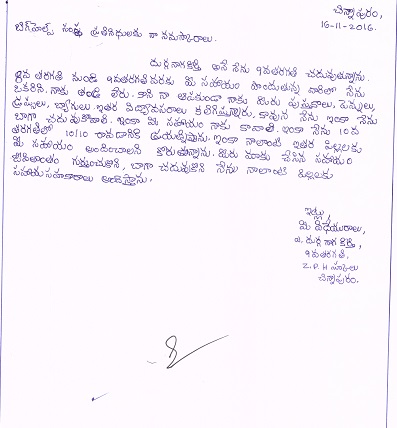 చిన్నాపురం,
16-11-2016.
బిగ్‌హెల్ప్ సంస్థ ప్రతినిధులకు నా నమస్కారాలు.
దుర్గనాగకీర్తి అనే నేను 9వతరగతి చదువుతున్నాను.
తరగతి నుండి 9వతరగతివరకు మీ సహాయం పొందుతున్న వారిలో నేను
ఒకదానిని. నాకు తండ్రి లేరు. కాని నా లేకుండా నాకు మీరు పుస్తకాలు, పెన్నులు,
డ్రస్సులు, బ్యాగులు, ఇతర విద్యావసరాలు కల్గిస్తున్నారు. కావున నేను ఇంకా నేను
బాగా చదువుకోవాలి. ఇంకా మీ సహాయం నాకు కావాలి. ఇంకా నేను 10వ
తరగతిలో 10/10 రావడానికి ప్రయత్నిస్తాను. ఇంకా నాలాంటి ఇతర పిల్లలకు
మీ సహాయం అందించాలని కోరుతున్నాను. మీరు మాకు చేసిన సహాయం
జీవితాంతం గుర్తుంచుకొని, బాగా చదువుకొని నేను నాలాంటి పిల్లలకు
సహాయసహకారాలు అందిస్తాను.
ఇట్లు,
మీ విధేయురాలు,
దుర్గ నాగ కీర్తి,
9వతరగతి,
Z.P.H స్కూలు
చిన్నాపురం.